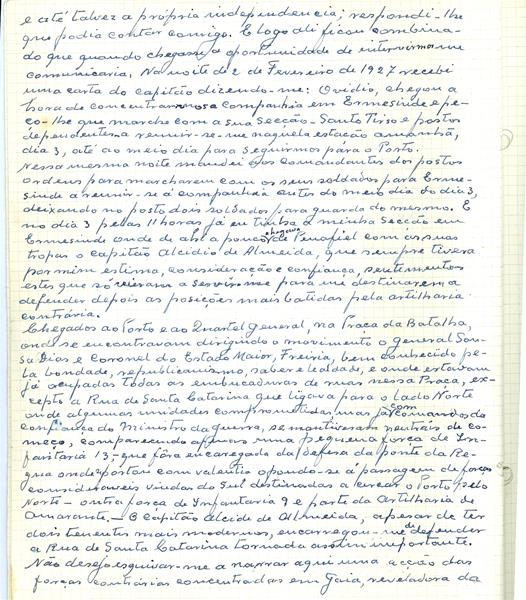 e até talvez a própria independencia; respondi-lhe
que podia contar comigo. E logo ali ficou combina-
do que quando chegasse a oportunidade de intervirmos me
comunicaria. Na noite de 2 de Fevereiro de 1927 recebi
uma carta do capitão dizendo-me: Ovidio, chegou a
hora de concentrarmos a companhia em Ermesinde e pe-
ço-lhe que marche com a sua secção - Santo Tirso e postos
dependentes a reunir-se-me naquela estação amanhã,
dia 3, até ao meio dia para seguirmos pára o Porto.
Nessa mesma noite mandei aos comandantes dos postos
ordens para marcharem com os seus soldados para Erme-
sinde a reunir-se á companhia antes do meio dia do dia 3,
deixando no posto dois soldados para guarda do mesmo. E
no dia 3 pelas 11 horas já eu tinha a minha secção em
Ermesinde onde de ahi a pouco chegava de Penafiel com as suas
tropas o capitão Alcidio de Almeida, que sempre tivera
por mim estima, consideração e confiança, sentimentos
estes que só vieram a servir-me para me destinarem a
defender depois as posições mais batidas pela artilharia
contrária.
Chegados ao Porto e ao Quartel General, na Praça da Batalha,
onde se encontravam dirigindo o movimento o general Sou-
sa Dias e Coronel do Estado Maior, Freiria, bem conhecido pe-
la bondade, republicanismo, saber e lealdade, e onde estavam
já ocupadas todas as embucaduras de ruas nessa Praça, ex-
cepto a Rua de Santa Catarina que ligava para o lado Norte
onde algumas unidades comprometidas mas já com comandos da
confiança do Ministro da guerra, se mantiveram neutráis de co-
meço, comparecendo apenas uma pequena força de In-
fantaria 13 - que fôra encarregada da defesa da ponte da Re-
gua onde portar com valentia opondo-se á passagem de forças
consideraveis vindas do Sul destinadas a cercar o Porto pelo
Norte - outra força de Infantaria 9 e parte da Artilharia de
Amarante. - O Capitão Alcide de Almeida, apesar de ter
dois tenentes mais modernos, encarregou-me de defender
a Rua de Santa Catarina tornada assim importante.
Não desejo esquivar-me a narrar aqui uma acção das
forças contrárias concentradas em Gaia, reveladora da